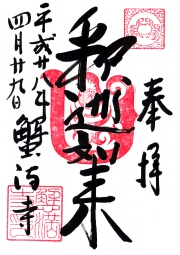 奉拝
釈迦如来
平成廿八年
四月廿九日
蟹満寺